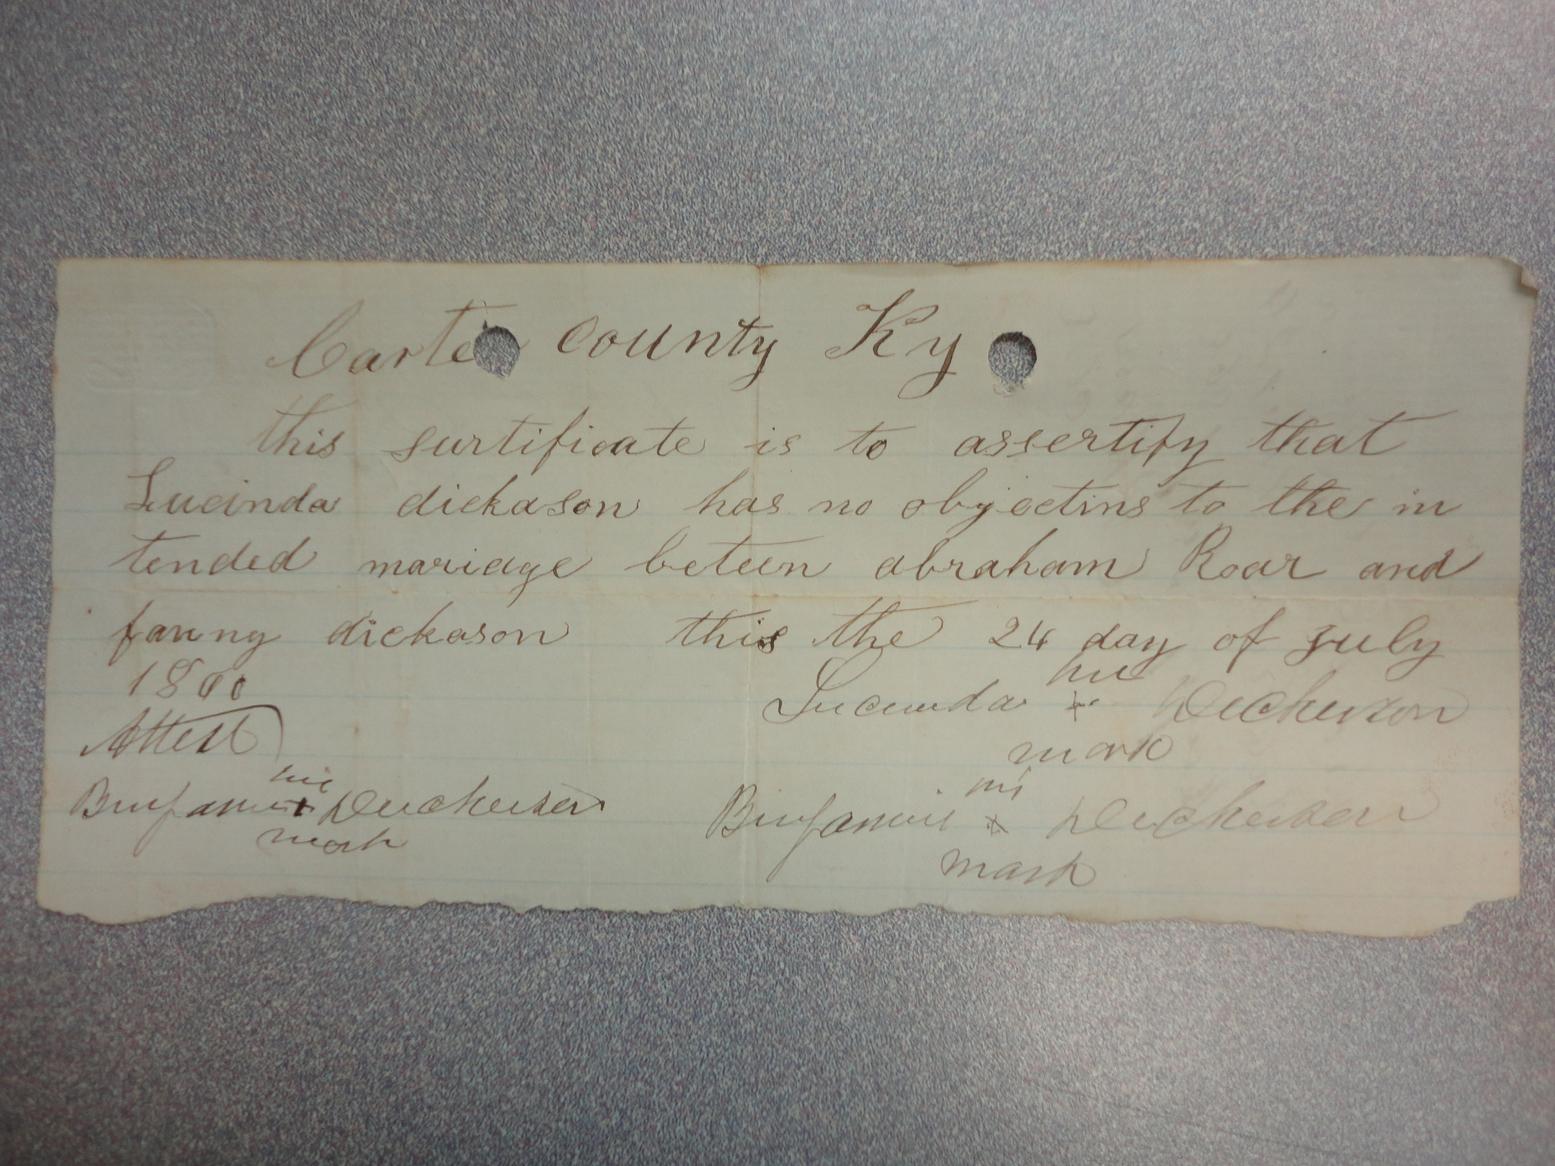 Carter county Ky
this surtificate is to assertify that
Lucinda dickason has no objectins to the in
tended mariage beteen abraham Roar and
fanny dickason this the 24 day of July
his
Lucinda x Dickerson
mark
Attest
his
Benjamin x Deickerson
mark
his
Benjamin x Deickerson
mark